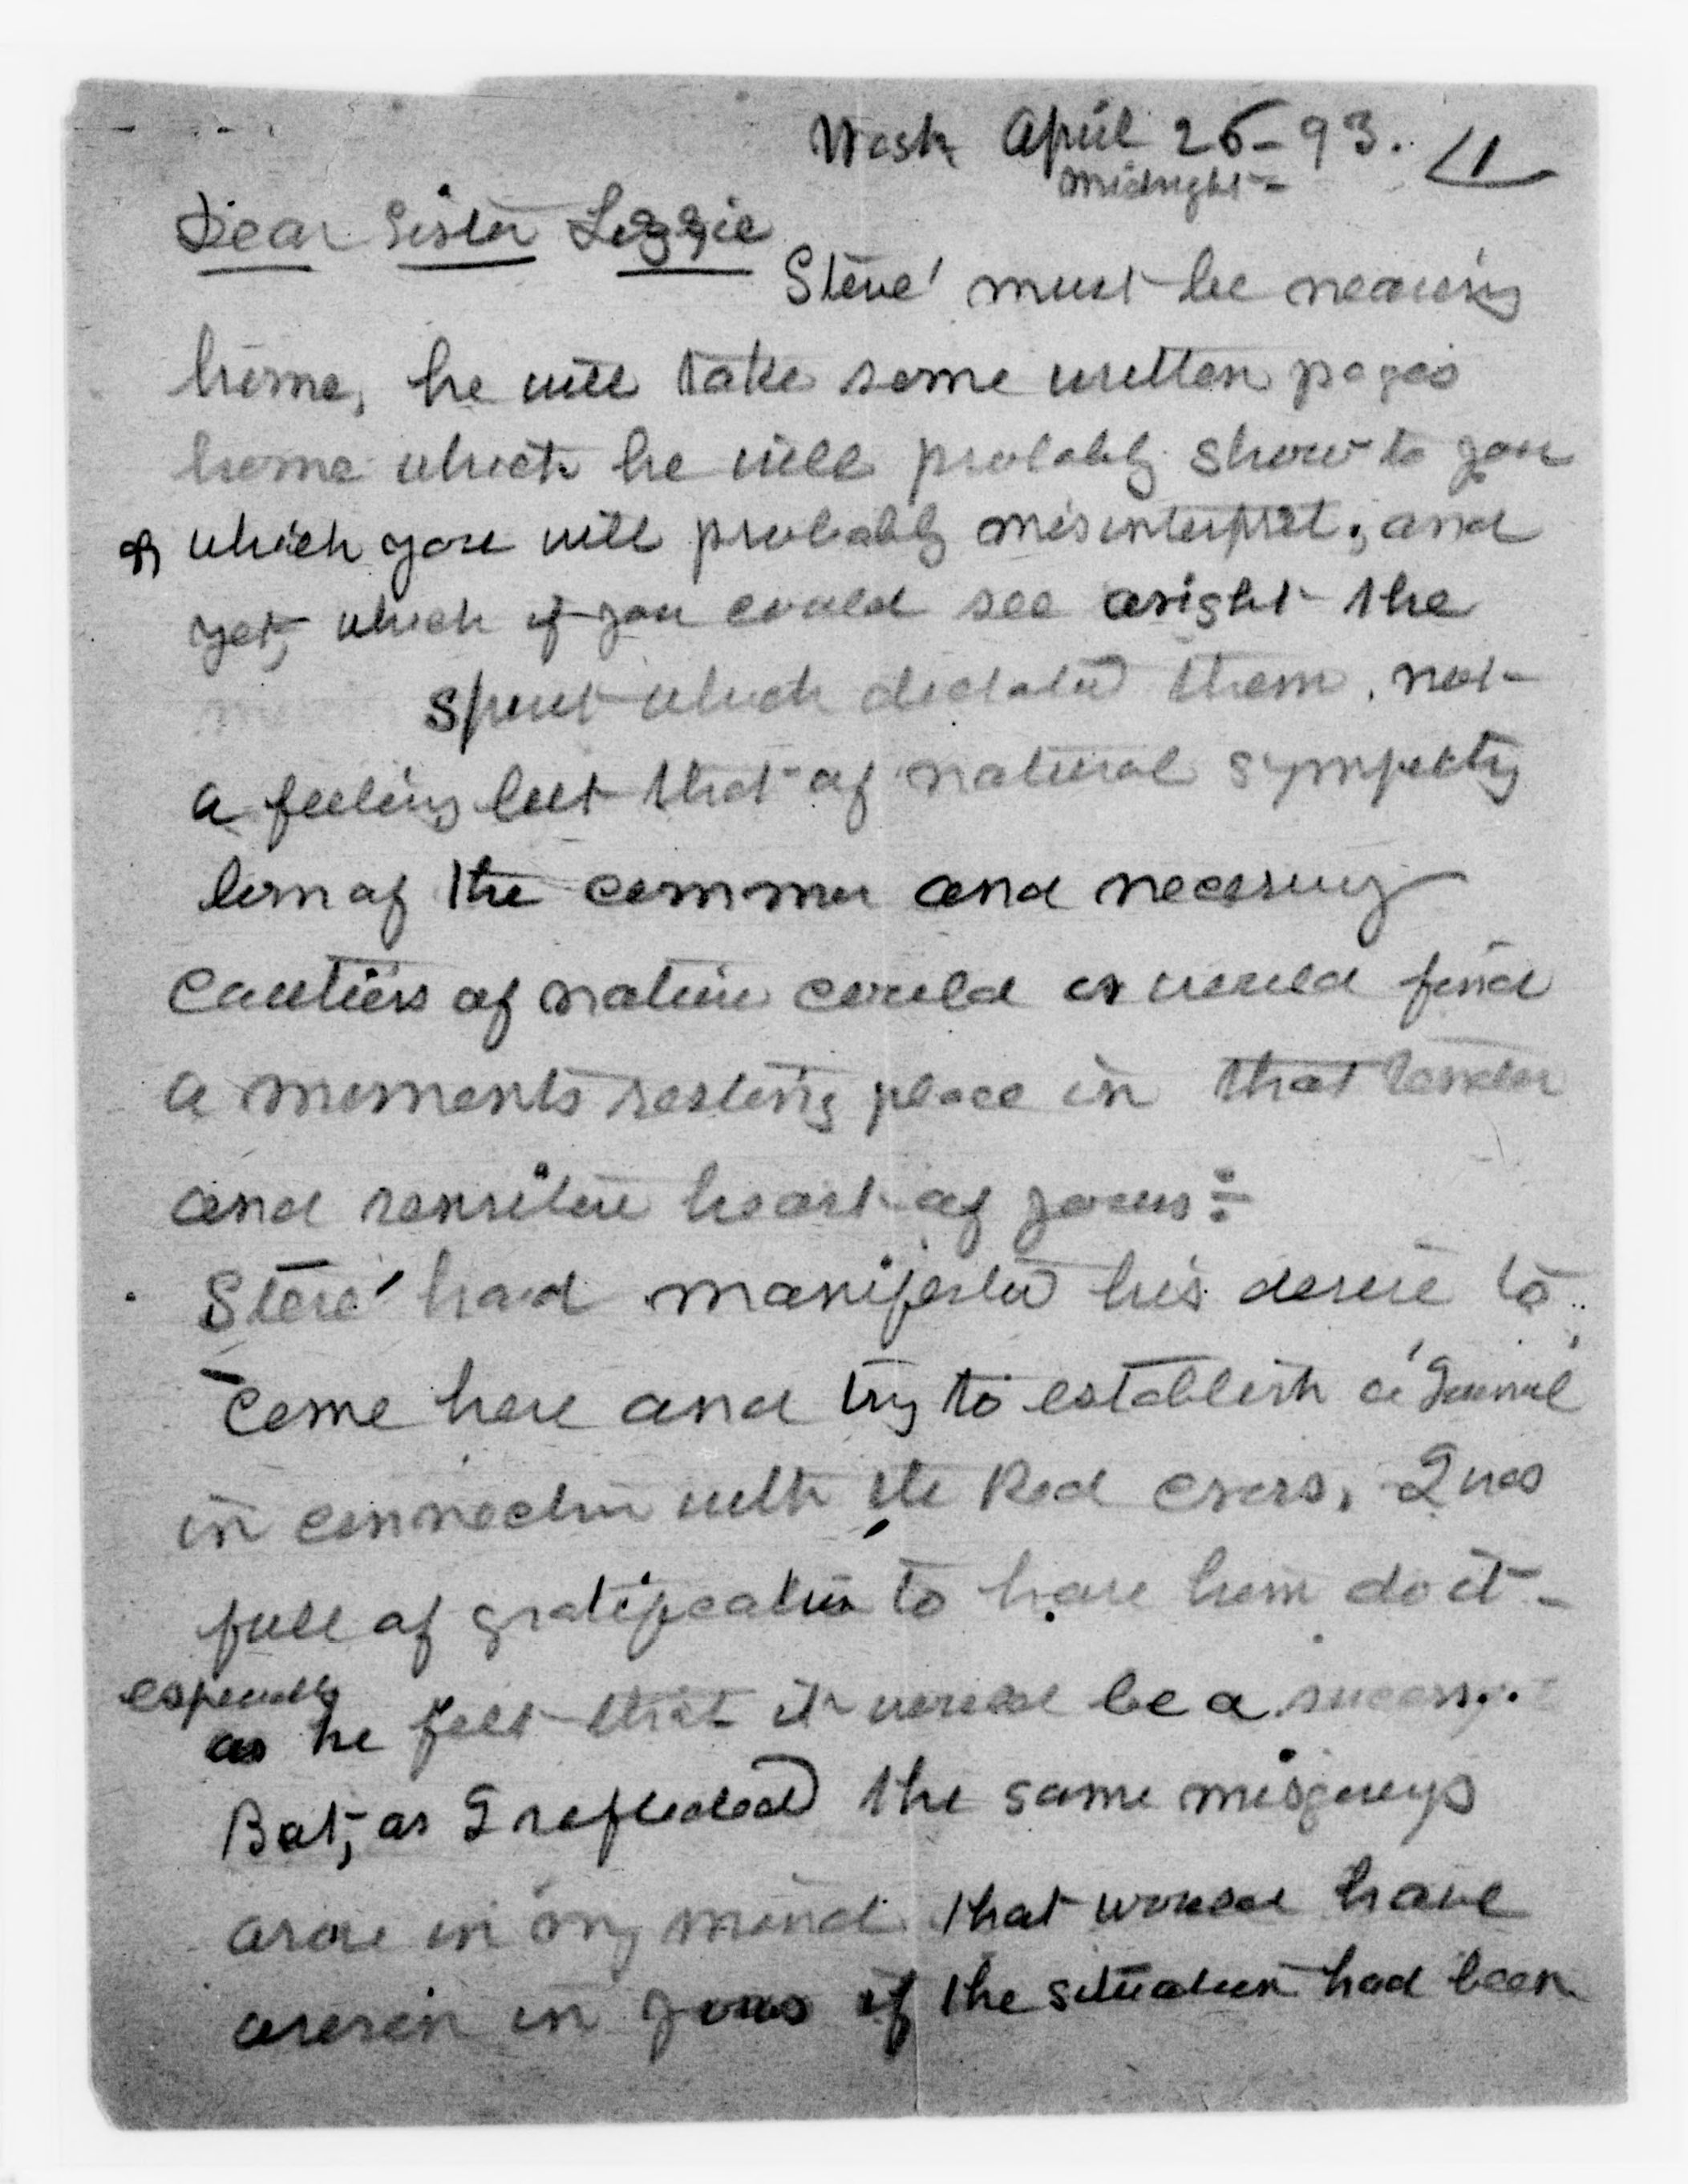 Wash April 26-93. 1
Midnight =
Dear Sister Lizzie
Steve' must be nearing
home, he will take some written pages
home which he will probably show to you
& which you will probably misinterpret; and
yet, which if you could see aright the
spirit which dictated them, not
a feeling but that of natural sympathy
born of the common and necessary
cautions of nature could or would find
a moments resting place in that tender
and sensitive heart of yours ÷
Steve' had manifested his desire to
come here and try to establish a 'Journal'
in connection with the Red Cross, I was
full of gratification to have him do it -
especially
as he felt that it would be a success..
But, as I reflected the same misgivings
arose in my mind that would have
arisen in yours if the situation had been